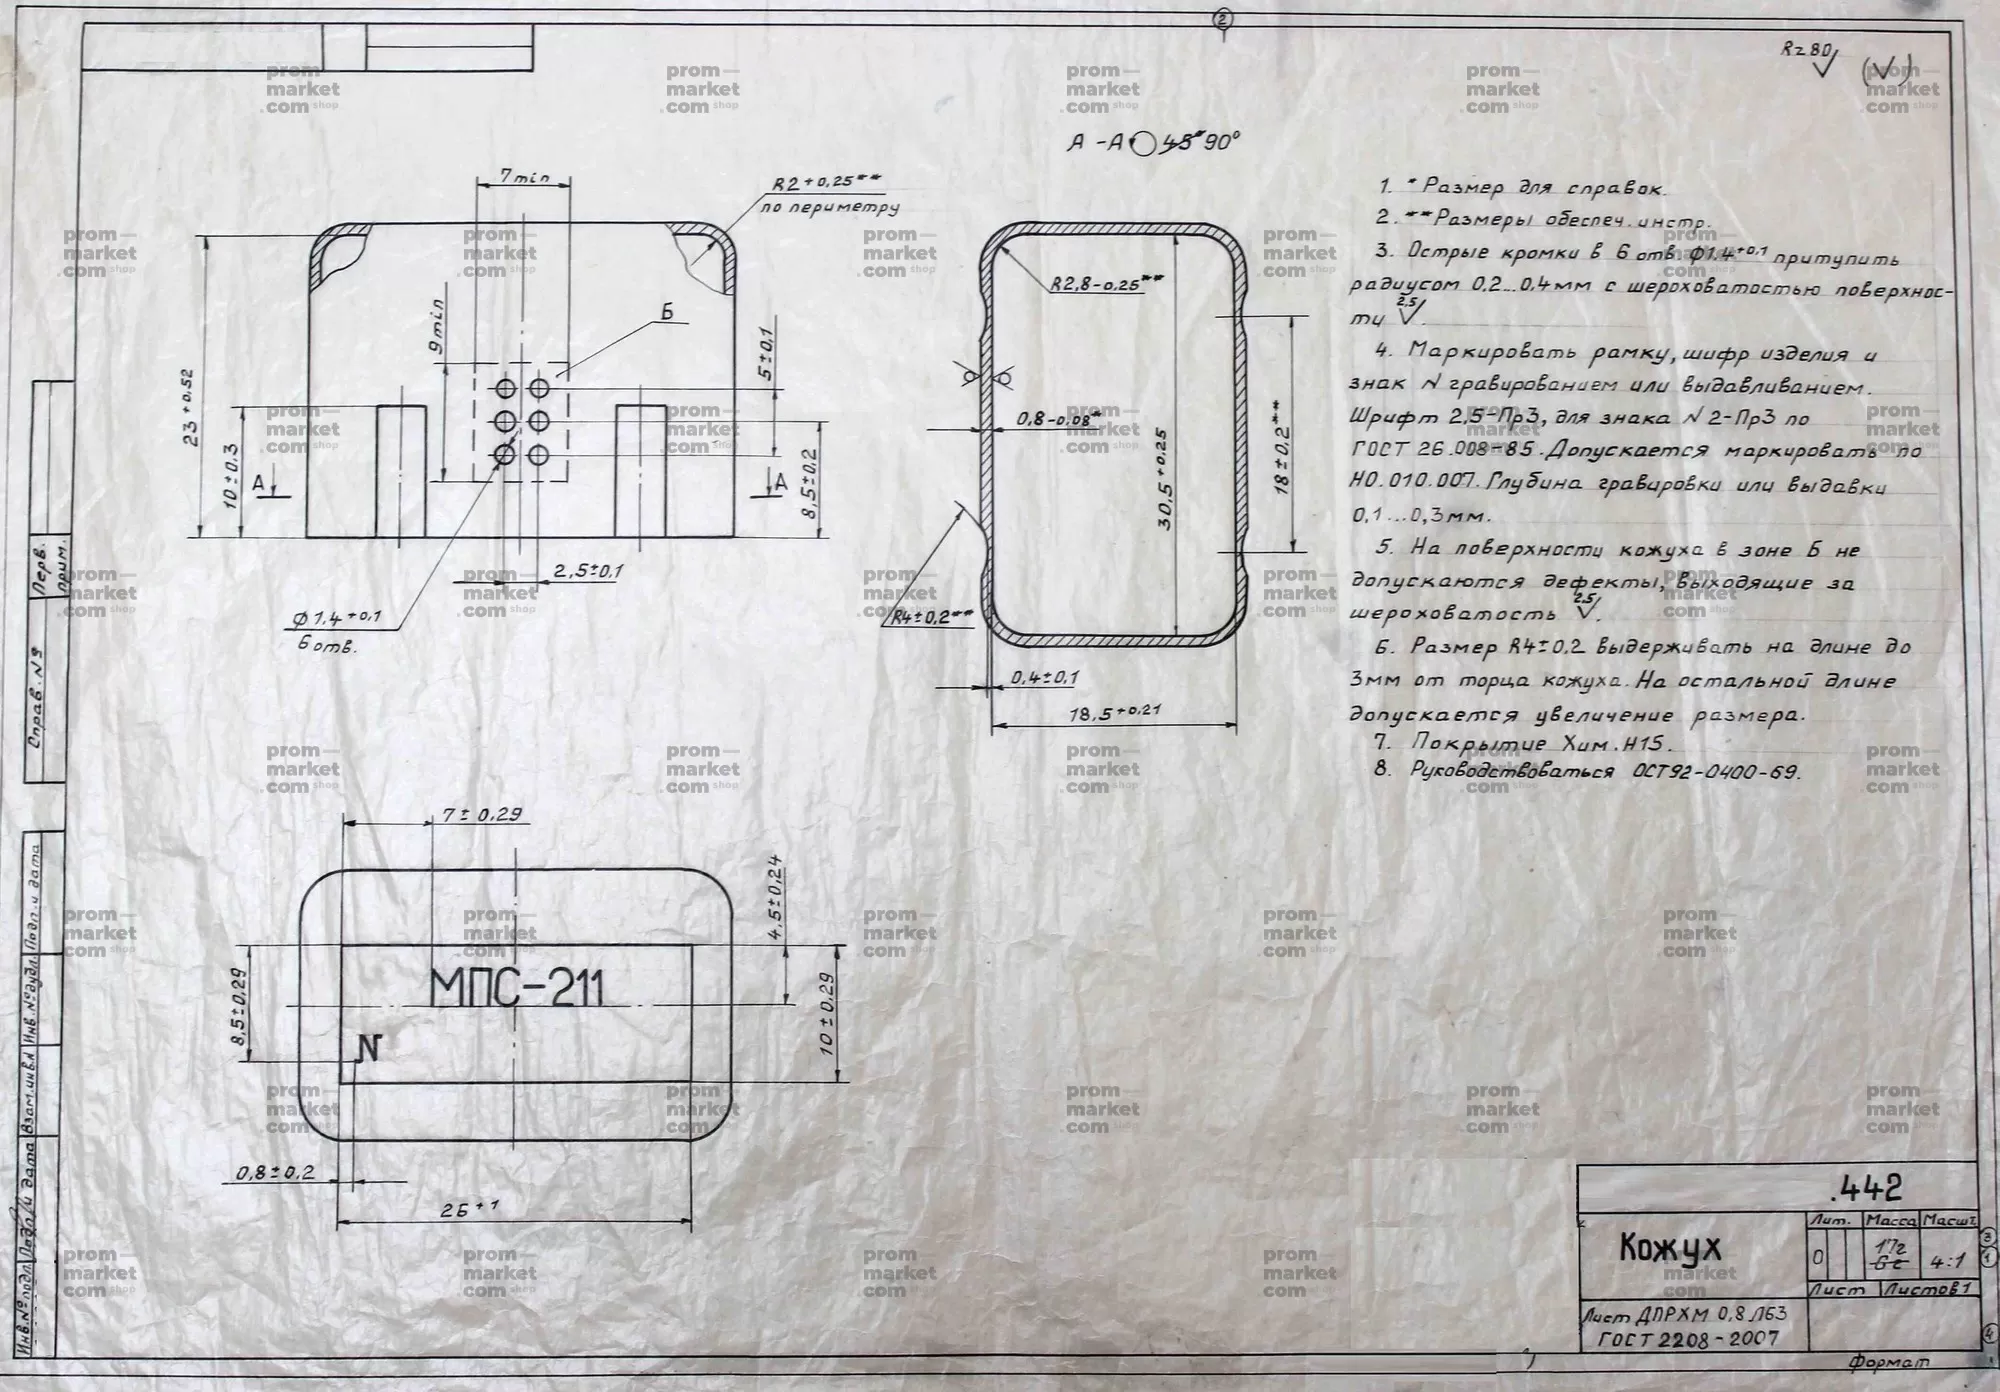 Rz80 (√)
А-А 45° 90°
7min
R2+0,25**
по периметру
9min
Б
5±0,1
23+0,52
10±0,3
А
А
8,5±0,2
2,5±0,1
ϕ1,4+0,1
6 отв.
R2,8-0,25**
0,8-0,08*
30,5+0,25
18±0,2**
R4±0,2**
0,4±0,1
18,5+0,21
1. * Размер для справок.
2. ** Размеры обеспеч. инстр.
3. Острые кромки в 6 отв. ϕ1,4+0,1 притупить
радиусом 0,2...0,4мм с шероховатостью поверхнос-
ти 2,5√.
4. Маркировать рамку, шифр изделия и
знак N гравированием или выдавливанием.
Шрифт 2,5-Пр3, для знака N 2-Пр3 по
ГОСТ 26.008-85. Допускается маркировать по
НО.010.007. Глубина гравировки или выдавки
0,1...0,3мм.
5. На поверхности кожуха в зоне Б не
допускаются дефекты, выходящие за
шероховатость 2,5√.
6. Размер R4±0,2 выдерживать на длине до
3мм от торца кожуха. На остальной длине
допускается увеличение размера.
7. Покрытие Хим.Н15.
8. Руководствоваться ОСТ92-0400-69.
7±0,29
4,5±0,24
8,5±0,29
МПС-211
N
10±0,29
0,8±0,2
26+1
Перв. прим.
Справ. №
Подп. и дата
Инв. № дубл.
Взам. инв. №
Подп. и дата
Инв. № подл.
.442
Кожух
Лит. Масса Масшт.
О 17г 6г 4:1
Лист Листов 1
Лист ДПРХМ 0,8 Л63
ГОСТ 2208-2007
Формат
2
3
1
4
prom-market.com shop